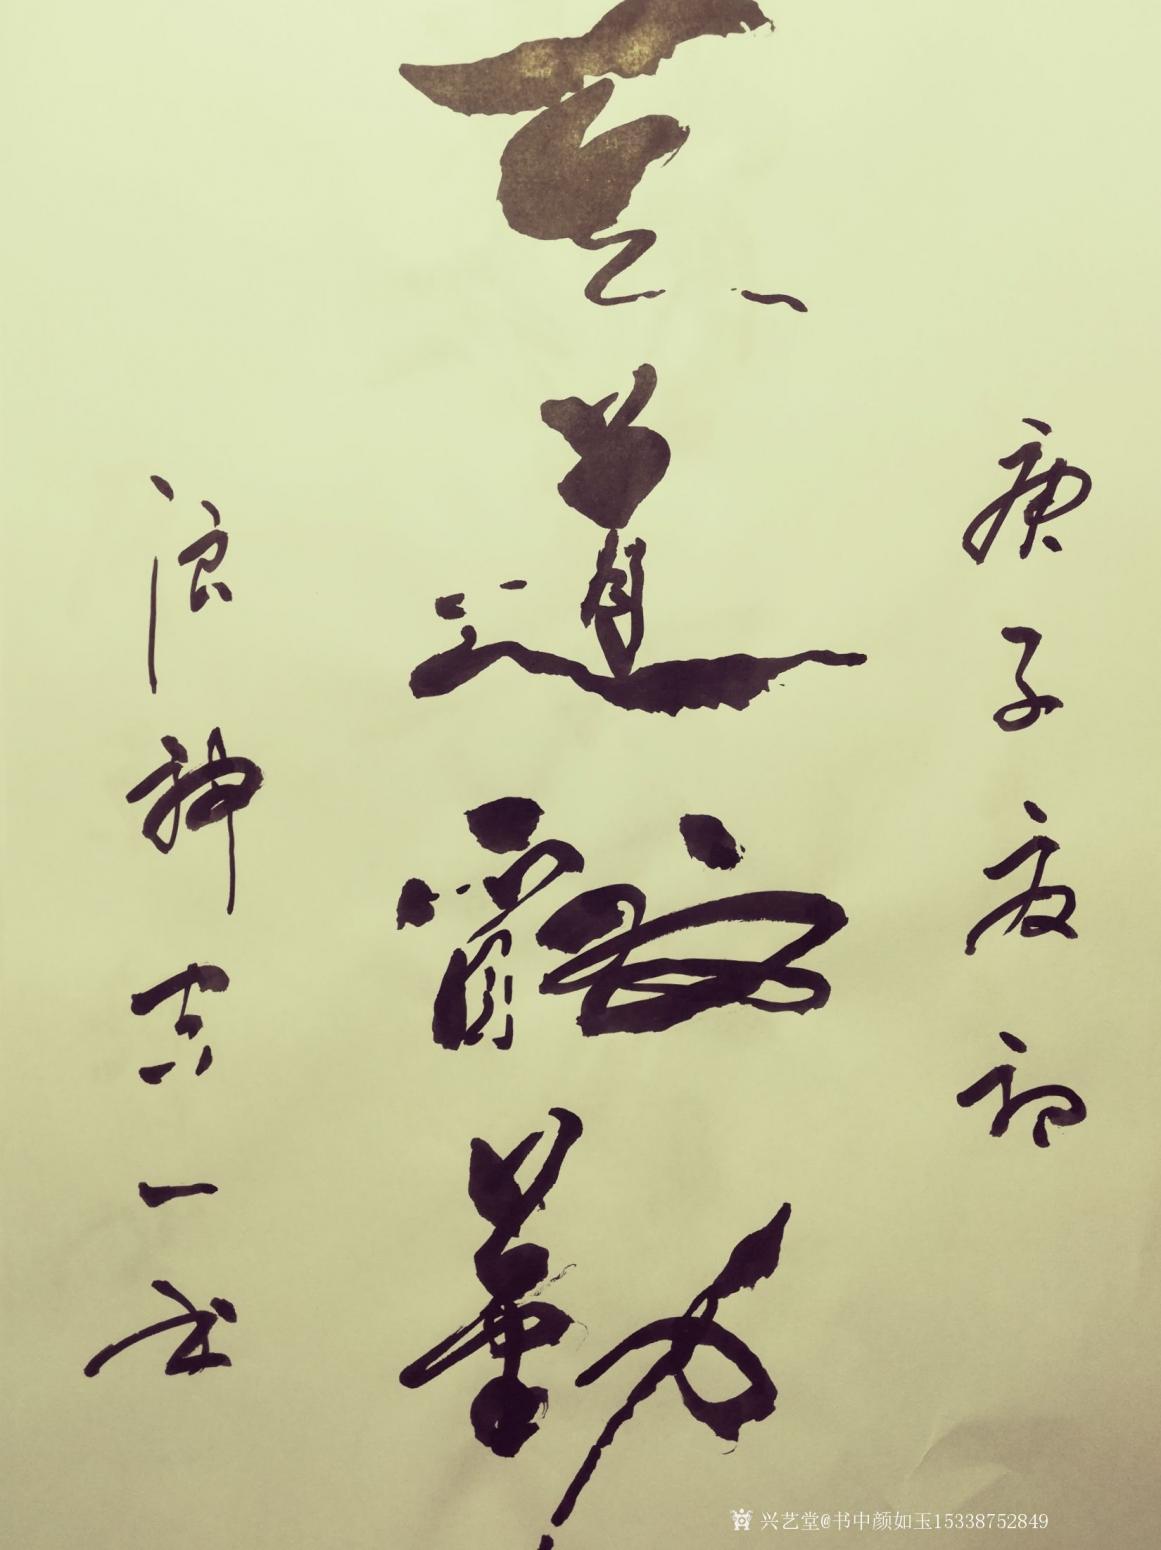 庚子夏初
天道酬勤
浪神京一书
兴艺堂@书中颜如玉15338752849